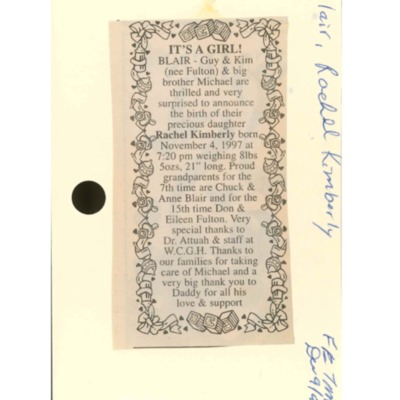 IT'S A GIRL!
BLAIR - Guy & Kim
(nee Fulton) & big
brother Michael are
thrilled and very
surprised to announce
the birth of their
precious daughter
Rachel Kimberly born
November 4, 1997 at
7:20 pm weighing 8lbs
5ozs, 21" long. Proud
grandparents for the
7th time are Chuck &
Anne Blair and for the
15th time Don &
Eileen Fulton. Very
special thanks to
Dr. Attuah & staff at
W.C.G.H. Thanks to
our families for taking
care of Michael and a
very big thank you to
Daddy for all his
love & support
lair, Rachel Kimberly